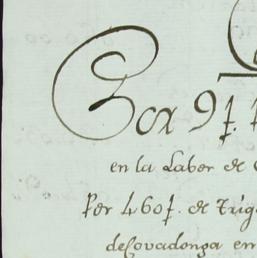 Por 9f.
en la Labor de
Por 460f. de Trig
de Covadonga en